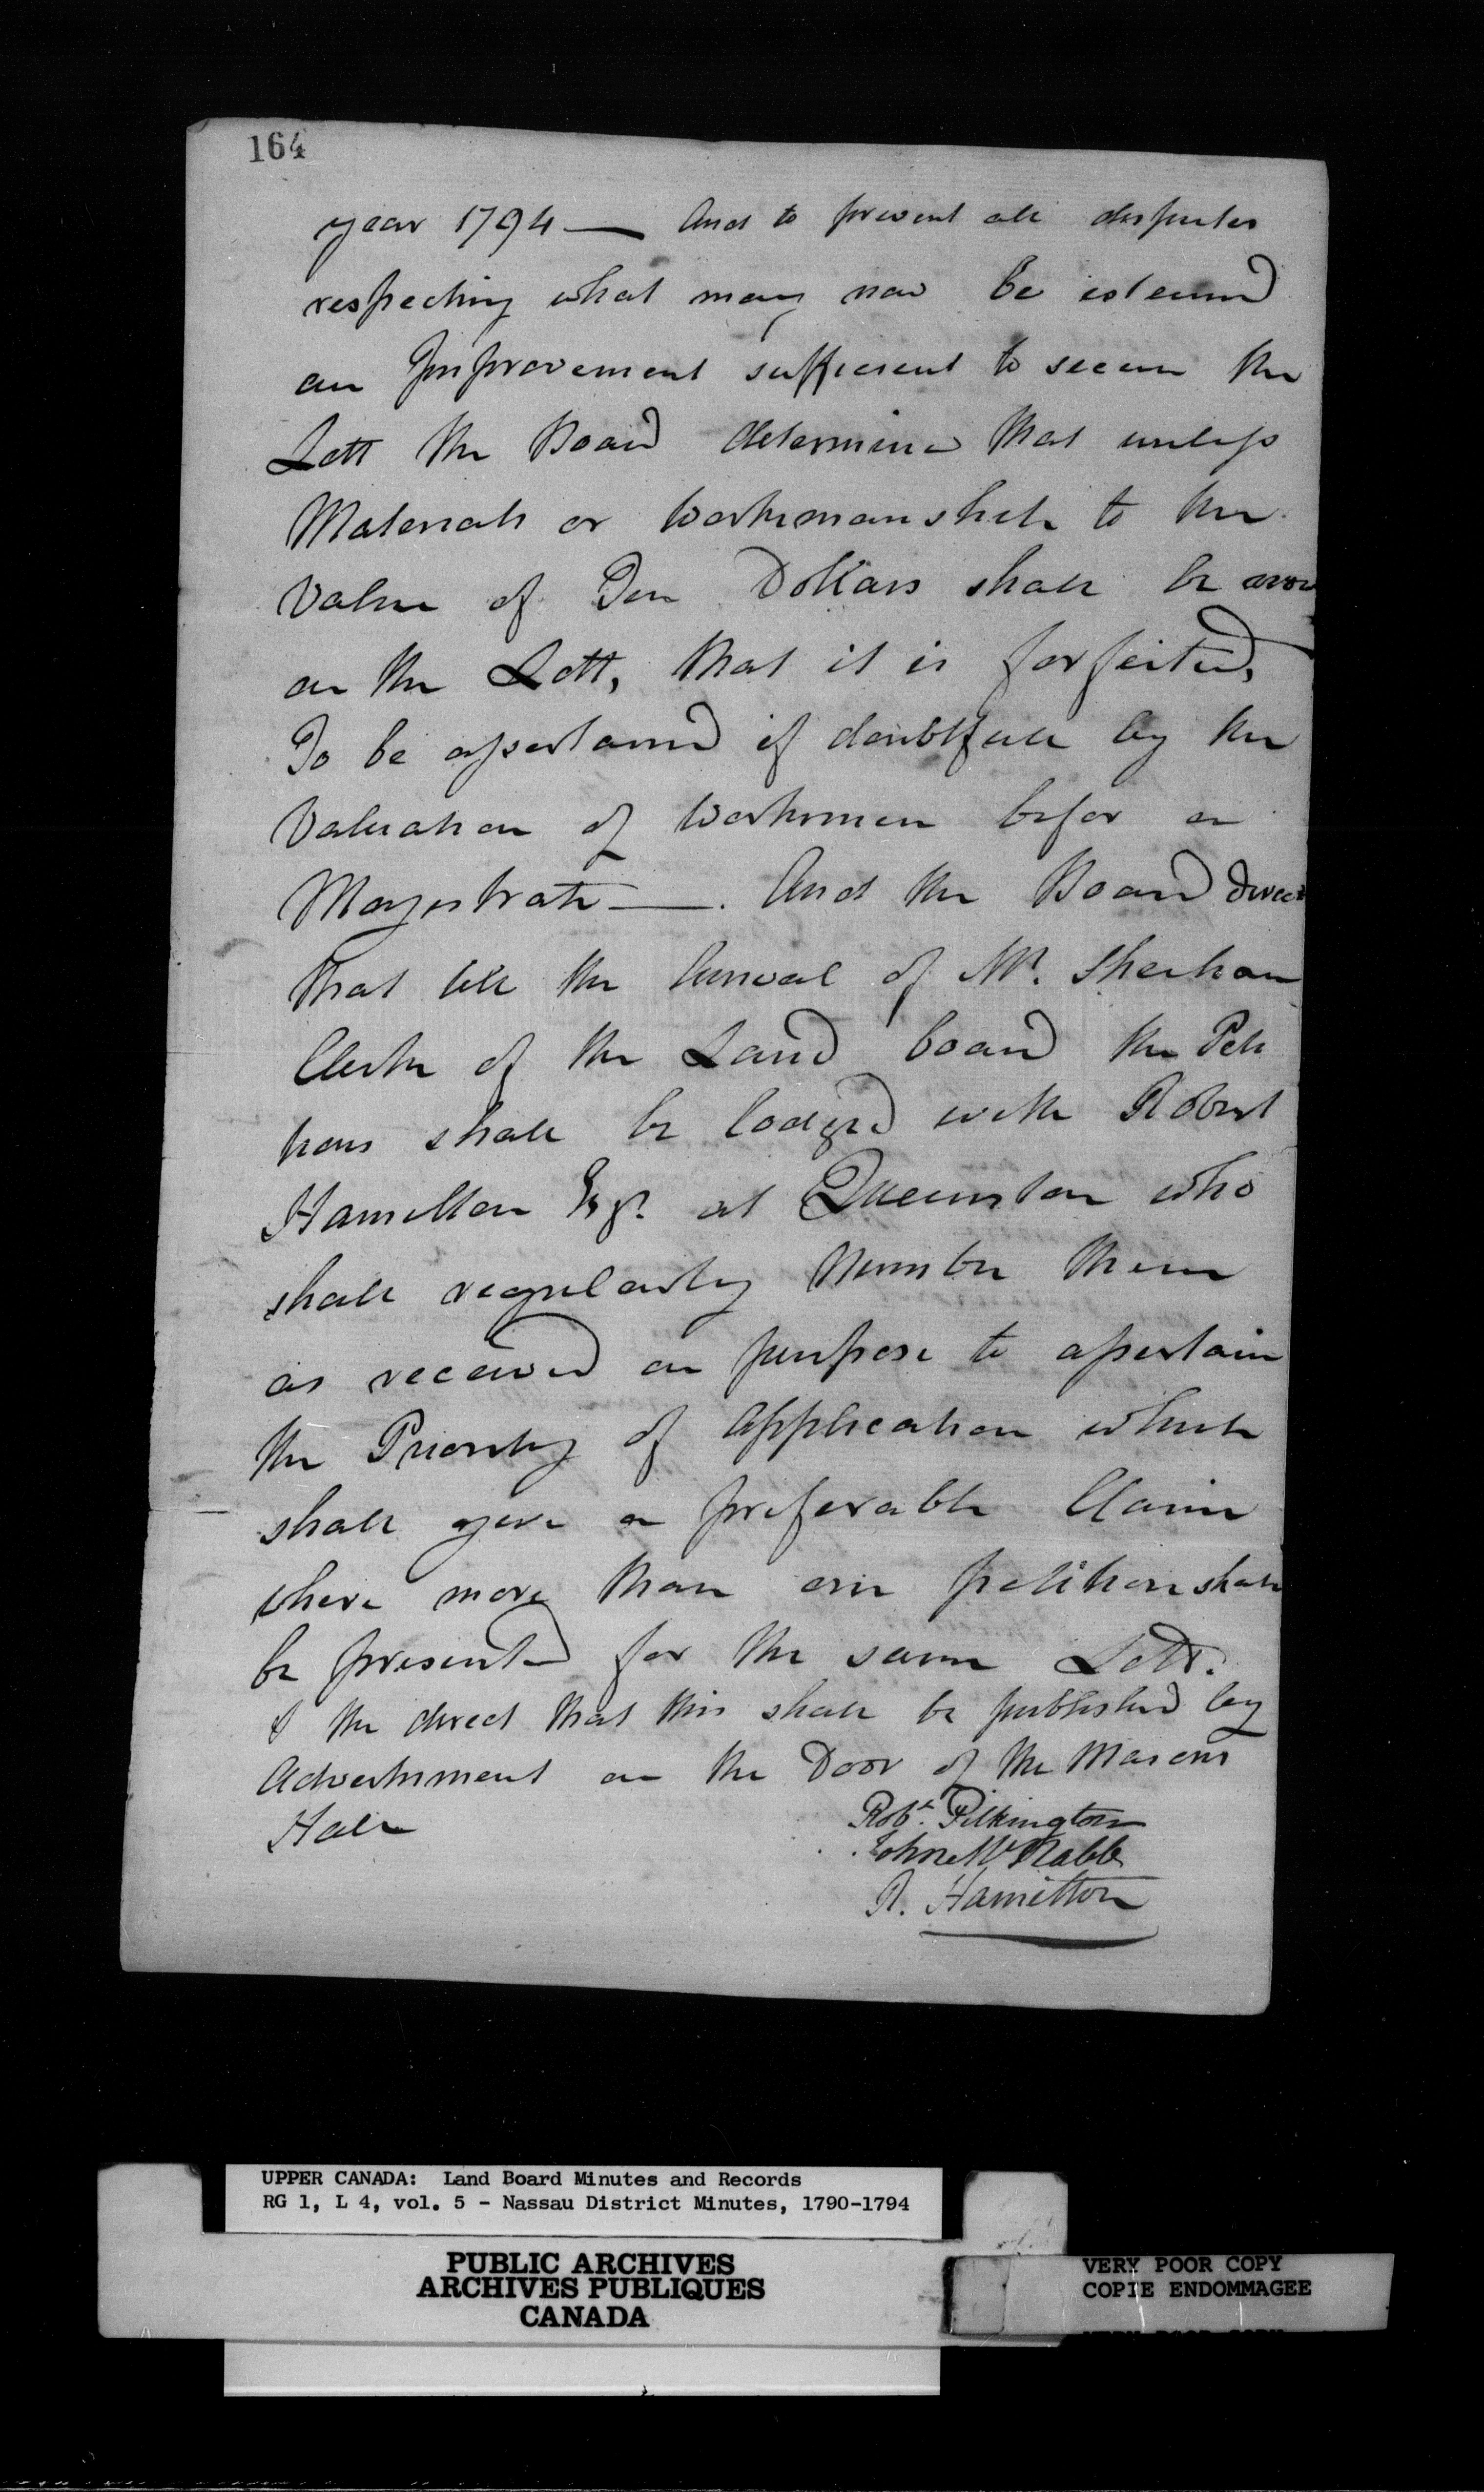 164
year 1794 — And to prevent all disputes
respecting what may now be esteemd
an Improvement sufficient to secure the
Lott the Board determine that unless
Materials or Workmanship to the
Value of Ten Dollars shall be
on the Lott, that it is forfeited,
To be assertained if doubtfull by the
Valuation of Workmen before a
Magistrate —. And the Board direct
that till the Arrival of Mr. Sheehan
Clerk of the Land board the Peti
tions shall be lodged with Robert
Hamilton Esqr. at Queenston who
shall regularly Number them
as received on purpose to assertain
the Priority of Application which
shall give a preferable Claim
where more than one petition shall
be presented for the same Lott.
& the direct that this shall be published by
Advertisment on the Door of the Masons
Hall
Robt. Pilkington
John McNabb
R. Hamilton
UPPER CANADA: Land Board Minutes and Records
RG 1, L 4, vol. 5 - Nassau District Minutes, 1790-1794
PUBLIC ARCHIVES
ARCHIVES PUBLIQUES
CANADA
VERY POOR COPY
COPIE ENDOMMAGEE